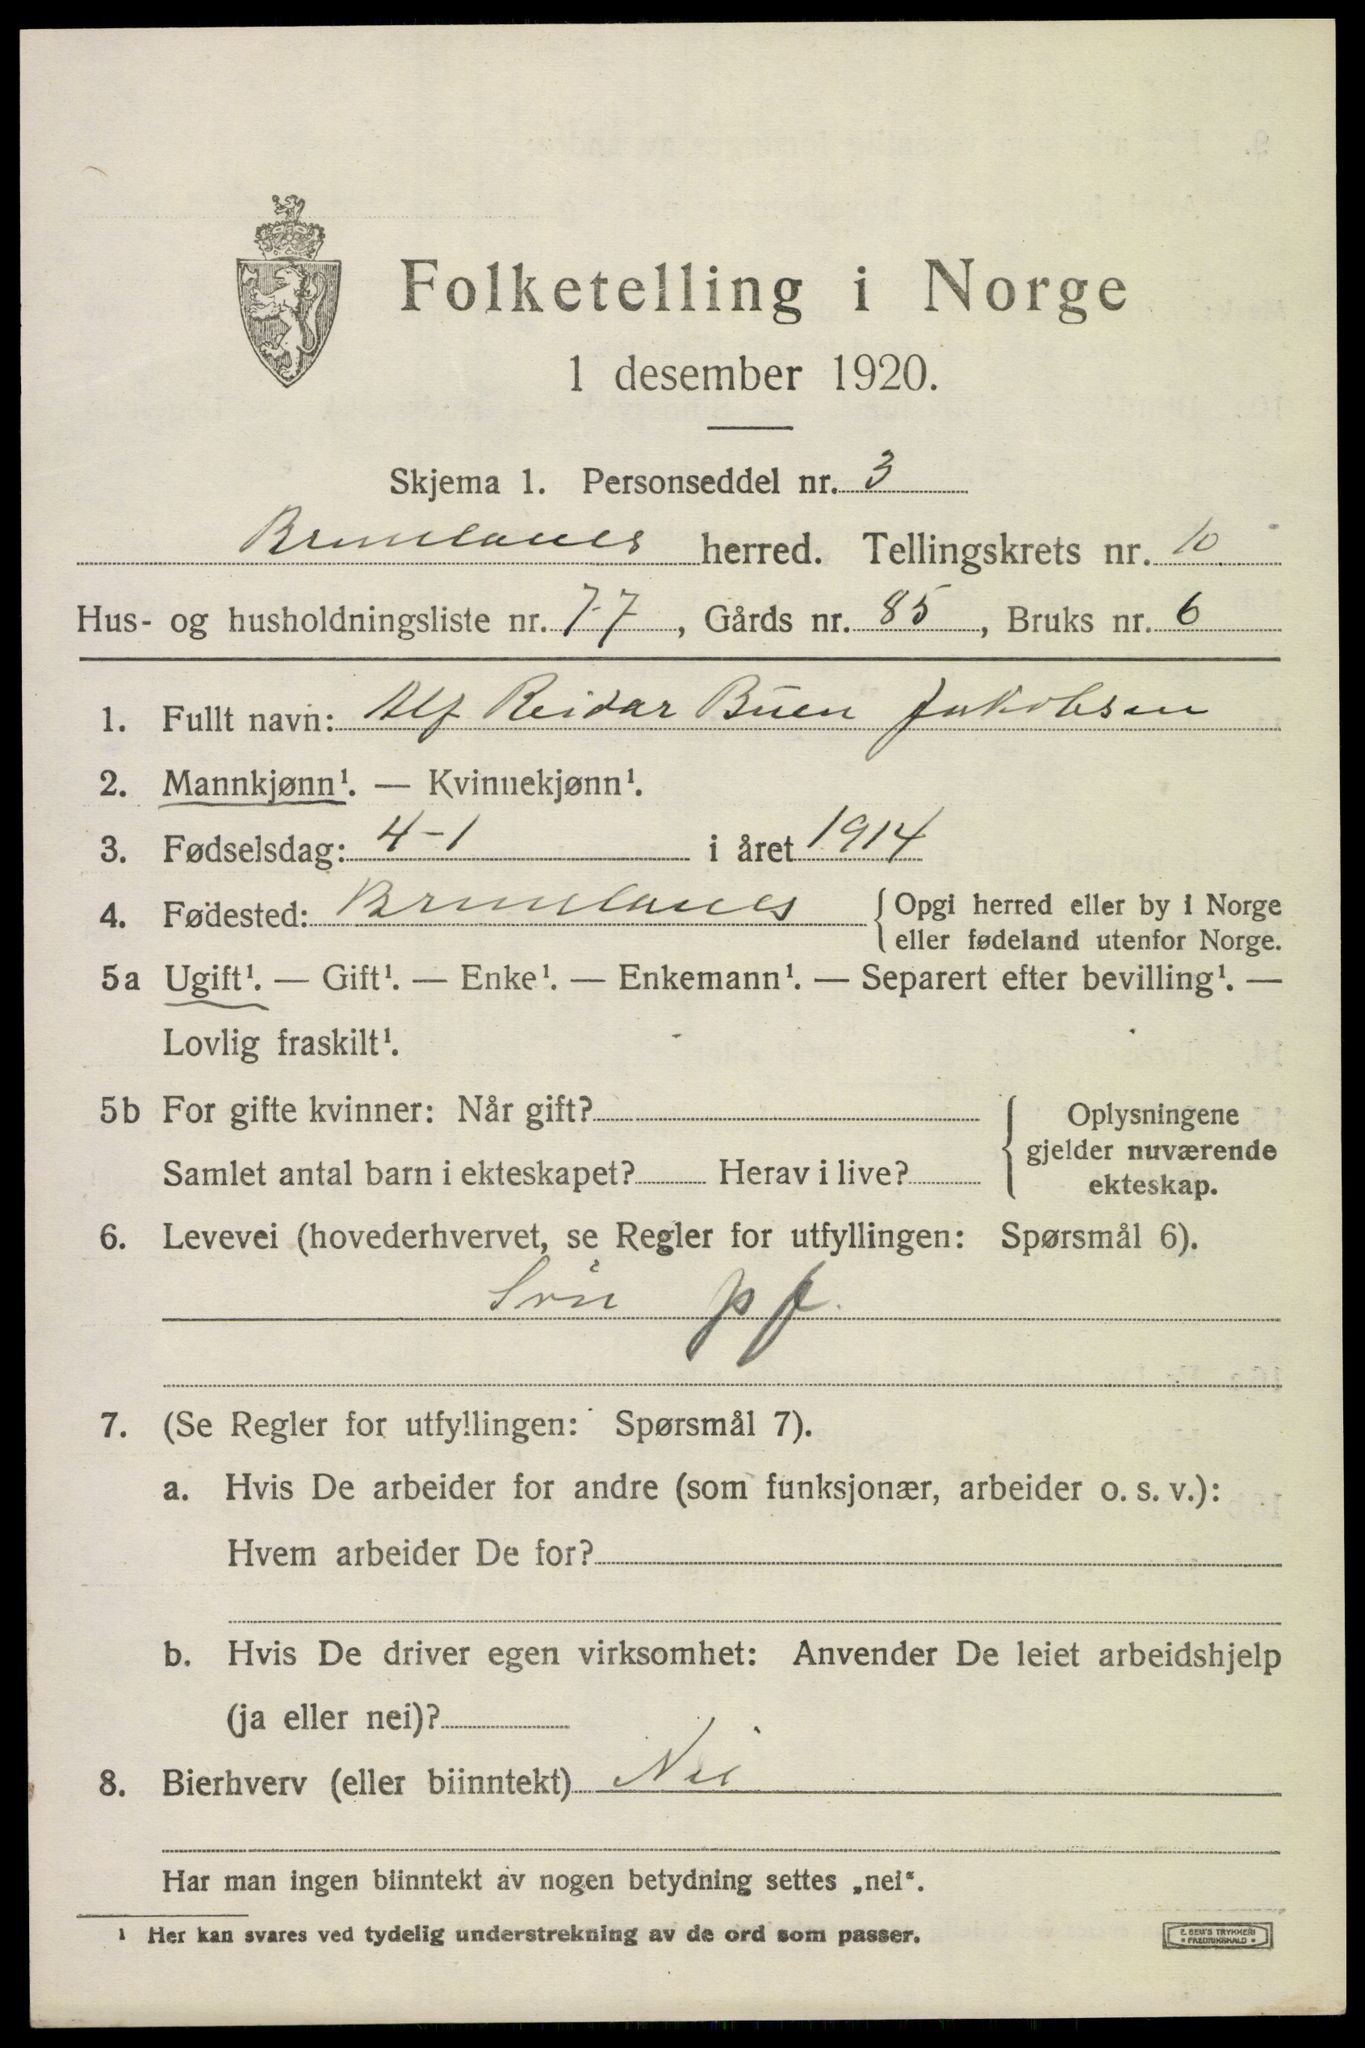 Folketelling i Norge
1 desember 1920.
Skjema 1. Personseddel nr. 3
Brunlanes herred. Tellingskrets nr. 10
Hus- og husholdningsliste nr. 77, Gårds nr. 85, Bruks nr. 6
1. Fullt navn: Alf Reidar Buen Jakobsen
2. Mannkjønn¹. — Kvinnekjønn¹.
3. Fødselsdag: 4-1 i året 1914
4. Fødested: Brunlanes {Opgi herred eller by i Norge
eller fødeland utenfor Norge.
5a Ugift¹. — Gift¹. — Enke¹. — Enkemann¹. — Separert efter bevilling¹. —
Lovlig fraskilt¹.
5b For gifte kvinner: Når gift? Oplysningene
gjelder nuværende
Samlet antal barn i ekteskapet? Herav i live? ekteskap.
6. Levevei (hovederhvervet, se Regler for utfyllingen: Spørsmål 6).
Søn pf.
7. (Se Regler for utfyllingen: Spørsmål 7).
a. Hvis De arbeider for andre (som funksjonær, arbeider o. s. v.):
Hvem arbeider De for?
b. Hvis De driver egen virksomhet: Anvender De leiet arbeidshjelp
(ja eller nei)?
8. Bierhverv (eller biinntekt) Nei
Har man ingen biinntekt av nogen betydning settes „nei“.
¹ Her kan svares ved tydelig understrekning av de ord som passer.
E. SEM'S TRYKKERI
FREDRIKSHALD